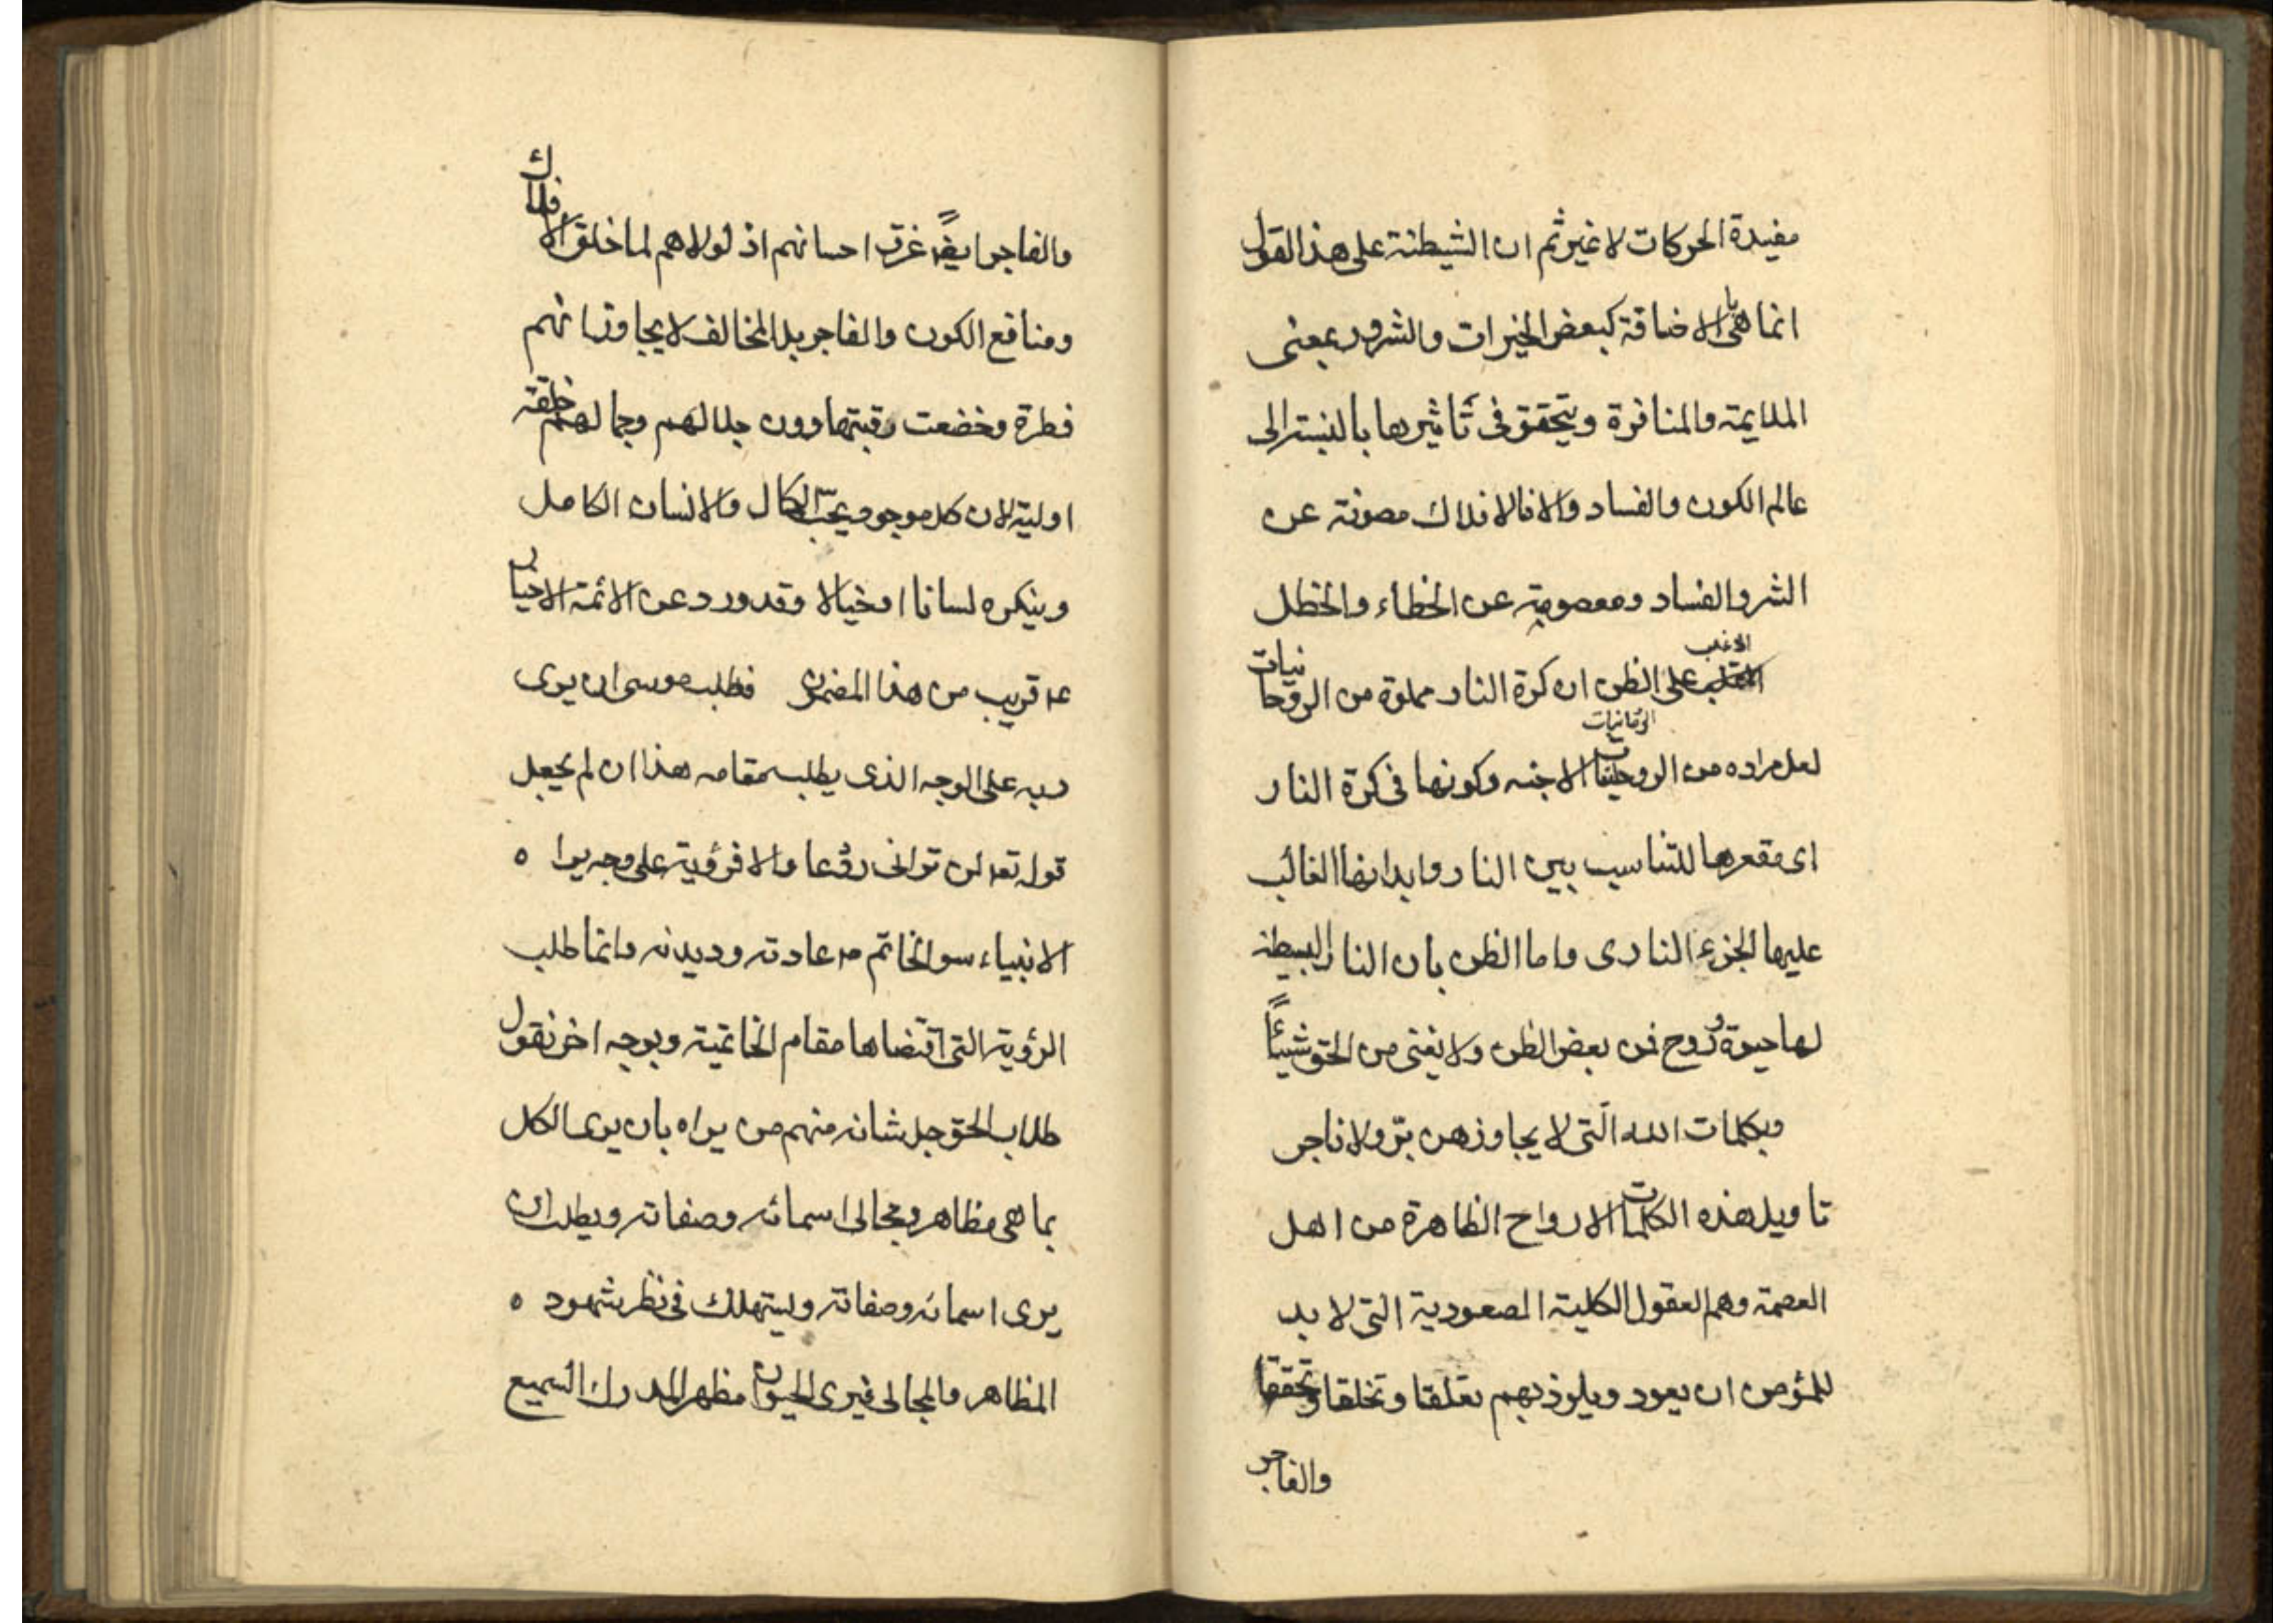 مفيدة الحركات لا غير ثم ان الشيطنة على هذا القول
انما هى بالاضافة كبعض الخيرات والشرور بمعنى
الملايمة والمنافرة ويتحقق فى تأثيرها بالنسبة الى
عالم الكون والفساد والا فالافلاك مصونة عن
الشر والفساد ومعصومة عن الخطاء والخطل
الاغلب على الظن ان كرة النار مملوة من الروحانيات
الروحانيات
لعل مراده من الروحانيات الاجنه وكونها فى كرة النار
اى مقعرها للتناسب بين النار وابدانها الغالب
عليها الجزء النارى واما الظن بان النار البسيطة
لها حيوة وروح فمن بعض الظن ولا يغنى من الحق شيئاً
وبكلمات الله الّتى لا يجاوزهن برّ ولا فاجر
تاويل هذه الكلمات الارواح الطاهرة من اهل
العصمة وهم العقول الكلية الصعودية التى لا بد
للمؤمن ان يعود ويلوذ بهم تعلقا وتخلقا وتحققا
والفاجر
والفاجر ايضاً غرق احسانهم اذ لولاهم لما خلق الافلاك
ومنافع الكون والفاجر بل المخالف لا يجاوزانهم
فطرة وخضعت رقبتهما دون جلالهم وجمالهم خلقة
اولية لان كل موجود يحب الكمال والانسان الكامل
وينكره لسانا او خيالا وقد ورد عن الائمة الاخيار
ع قريب من هذا المضمون فطلب موسى ان يرى
ربه على الوجه الذى يطلبه مقامه هذا ان لم يجعل
قوله تع لن ترانى ردعا والا فرؤية على وجه يراه
الانبياء سوى الخاتم ص عادته وديدنه وانما طلب
الرؤية التى اقتضاها مقام الخاتمية وبوجه اخر نقول
طلاب الحق جل شانه منهم من يراه بان يرى الكل
بما هى مظاهر ومجالى اسمائه وصفاته ويطلب ان
يرى اسمائه وصفاته ويستهلك فى نظر شهوده
المظاهر والمجالى فيرى الحيوان مظهر المدرك السميع